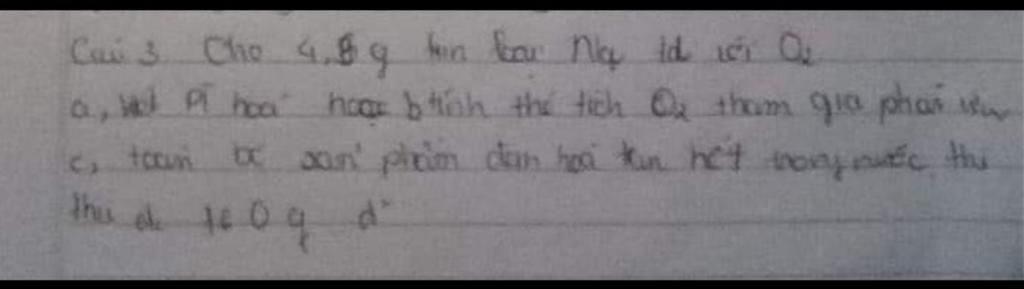 Câu 3 Cho 4,6 g kim loại Na td với O2
a, Viết Pt hoá học b tính thể tích O2 tham gia phản ứng
c, toàn bộ sản phẩm đem hoà tan hết trong nước thì
thu đc 160 g d²